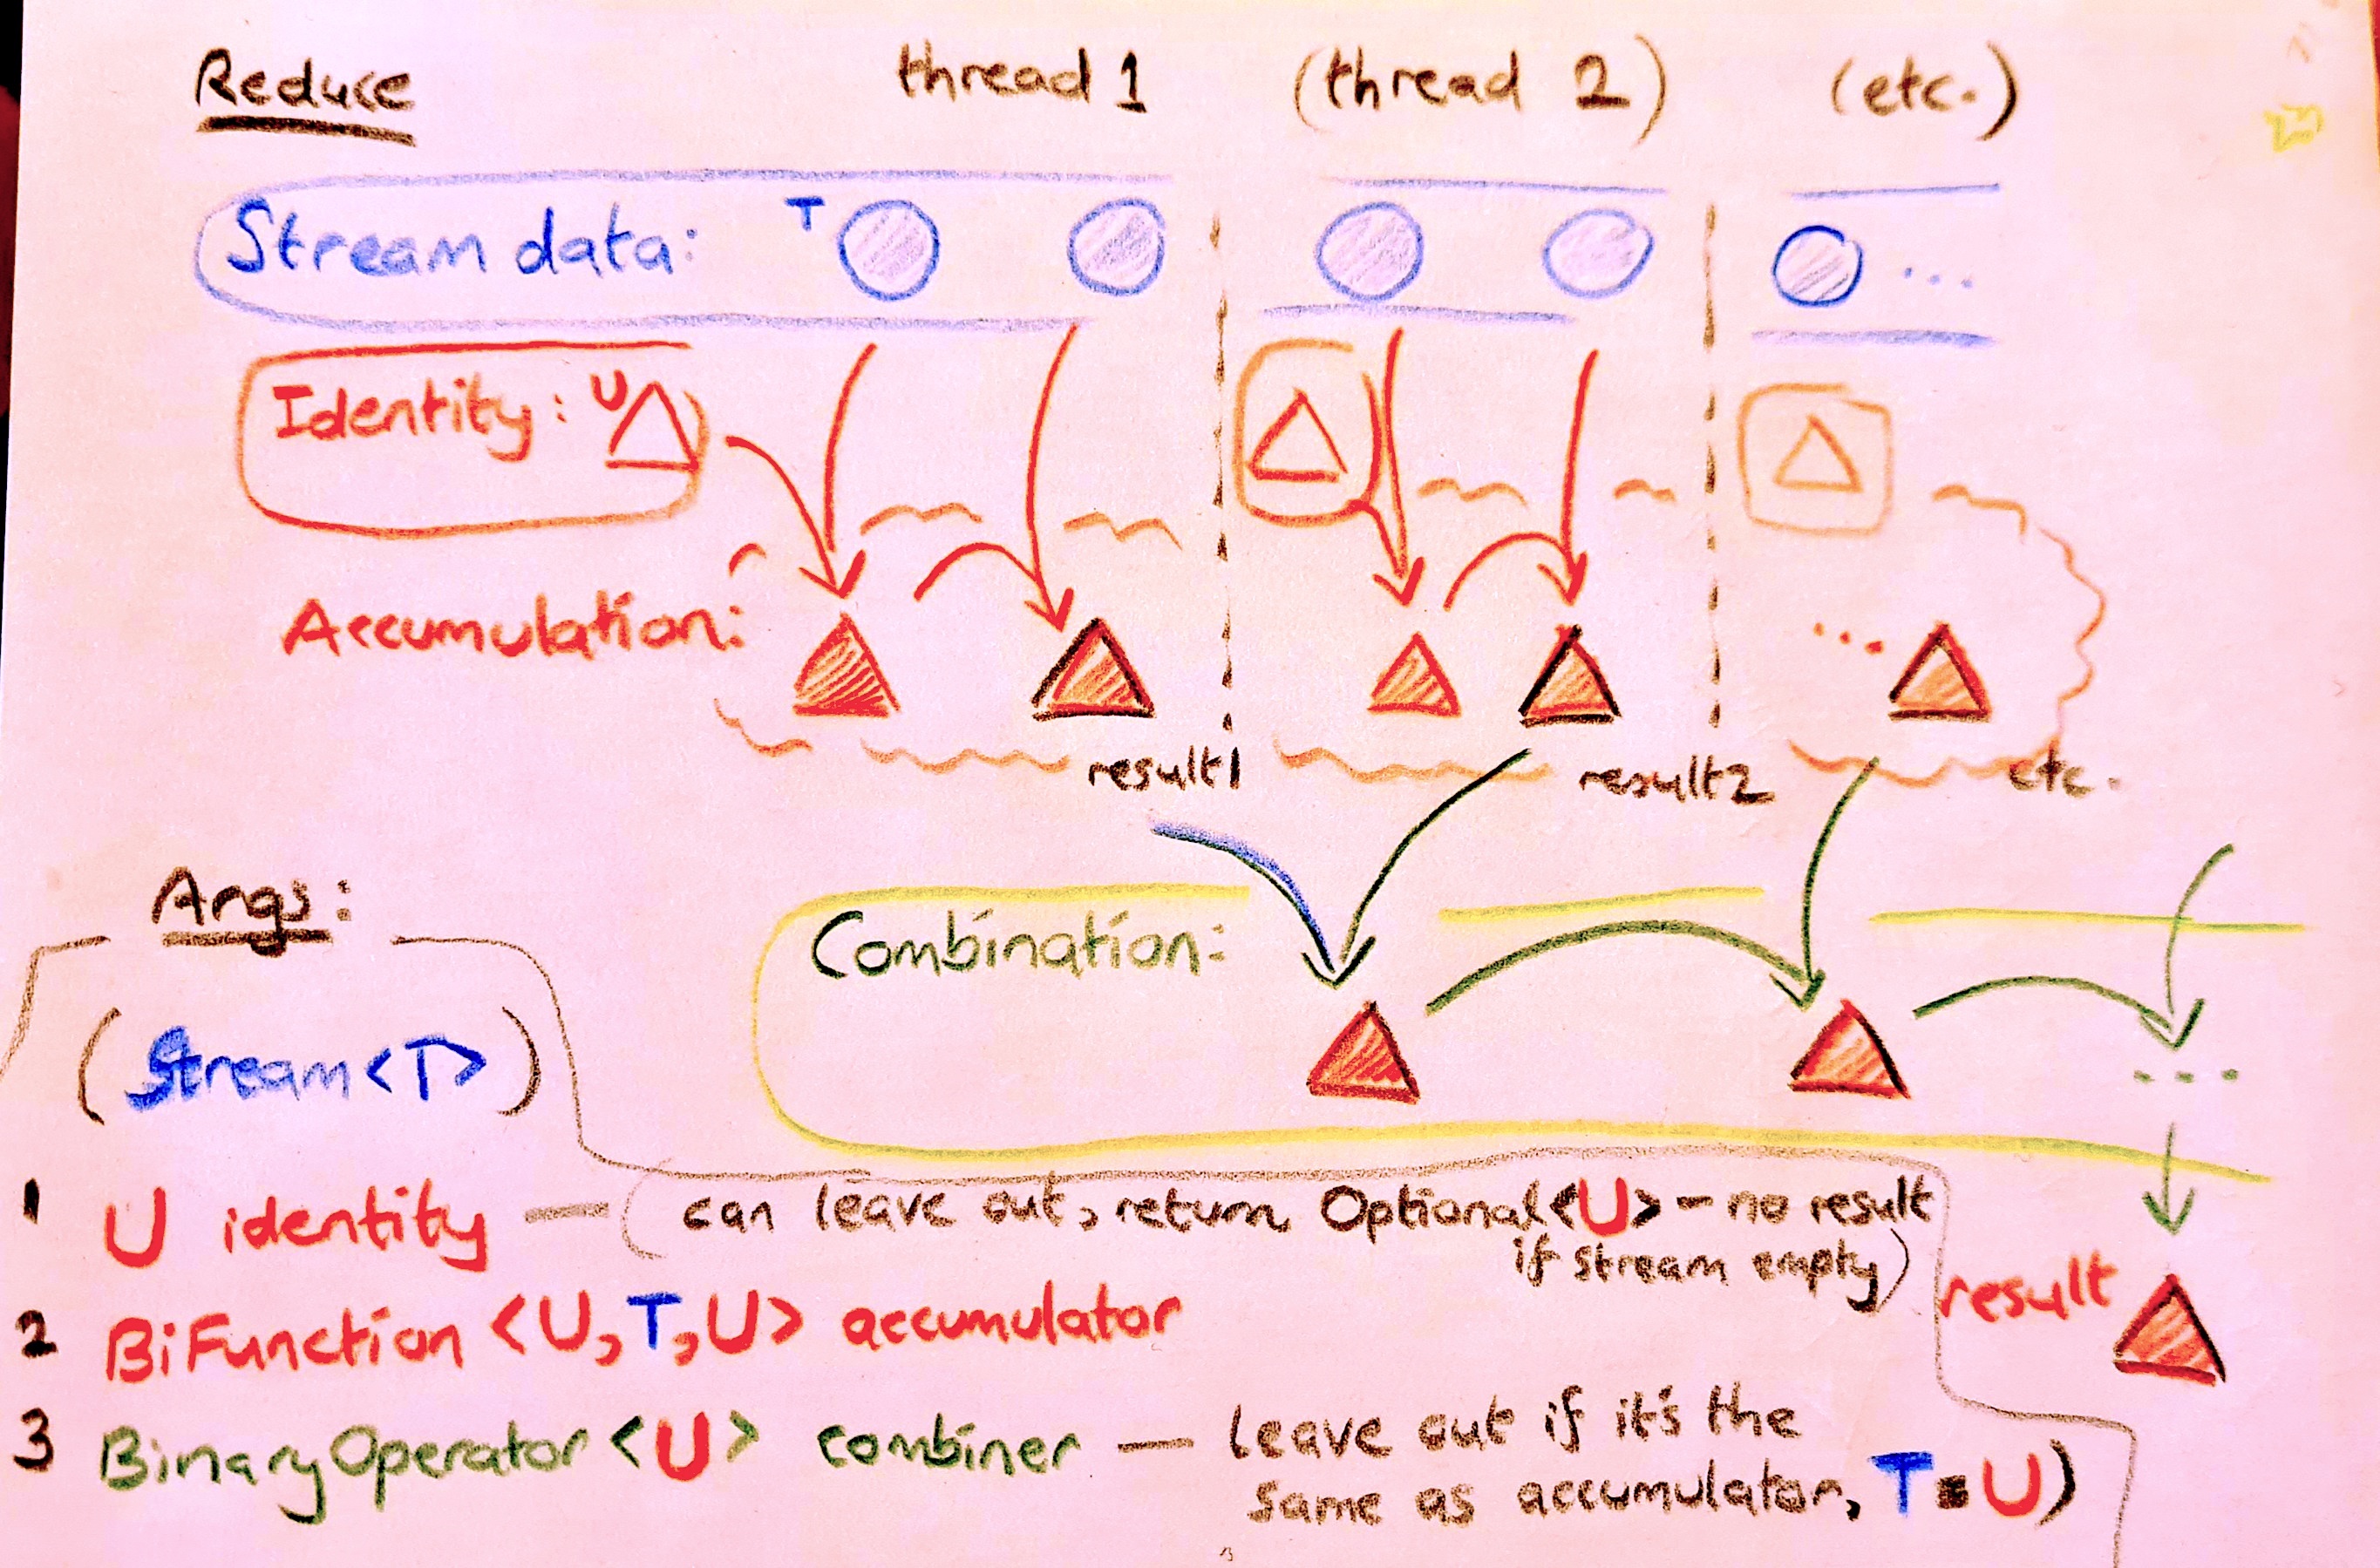 Reduce thread 1 (thread 2) (etc.)
Stream data: T ...
Identity: U
Accumulation: ...
result1 result2 etc.
Combination:
...
Args:
(Stream<T>)
1 U identity — (can leave out, return Optional<U> - no result
if stream empty)
result
2 BiFunction <U,T,U> accumulator
3 BinaryOperator <U> combiner — leave out if it's the
same as accumulator, T=U)